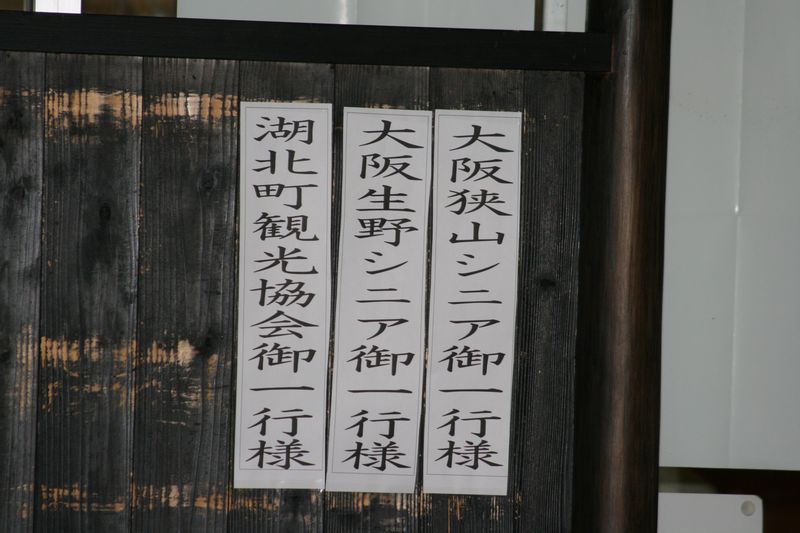 大阪狭山シニア御一行様
大阪生野シニア御一行様
湖北町観光協会御一行様